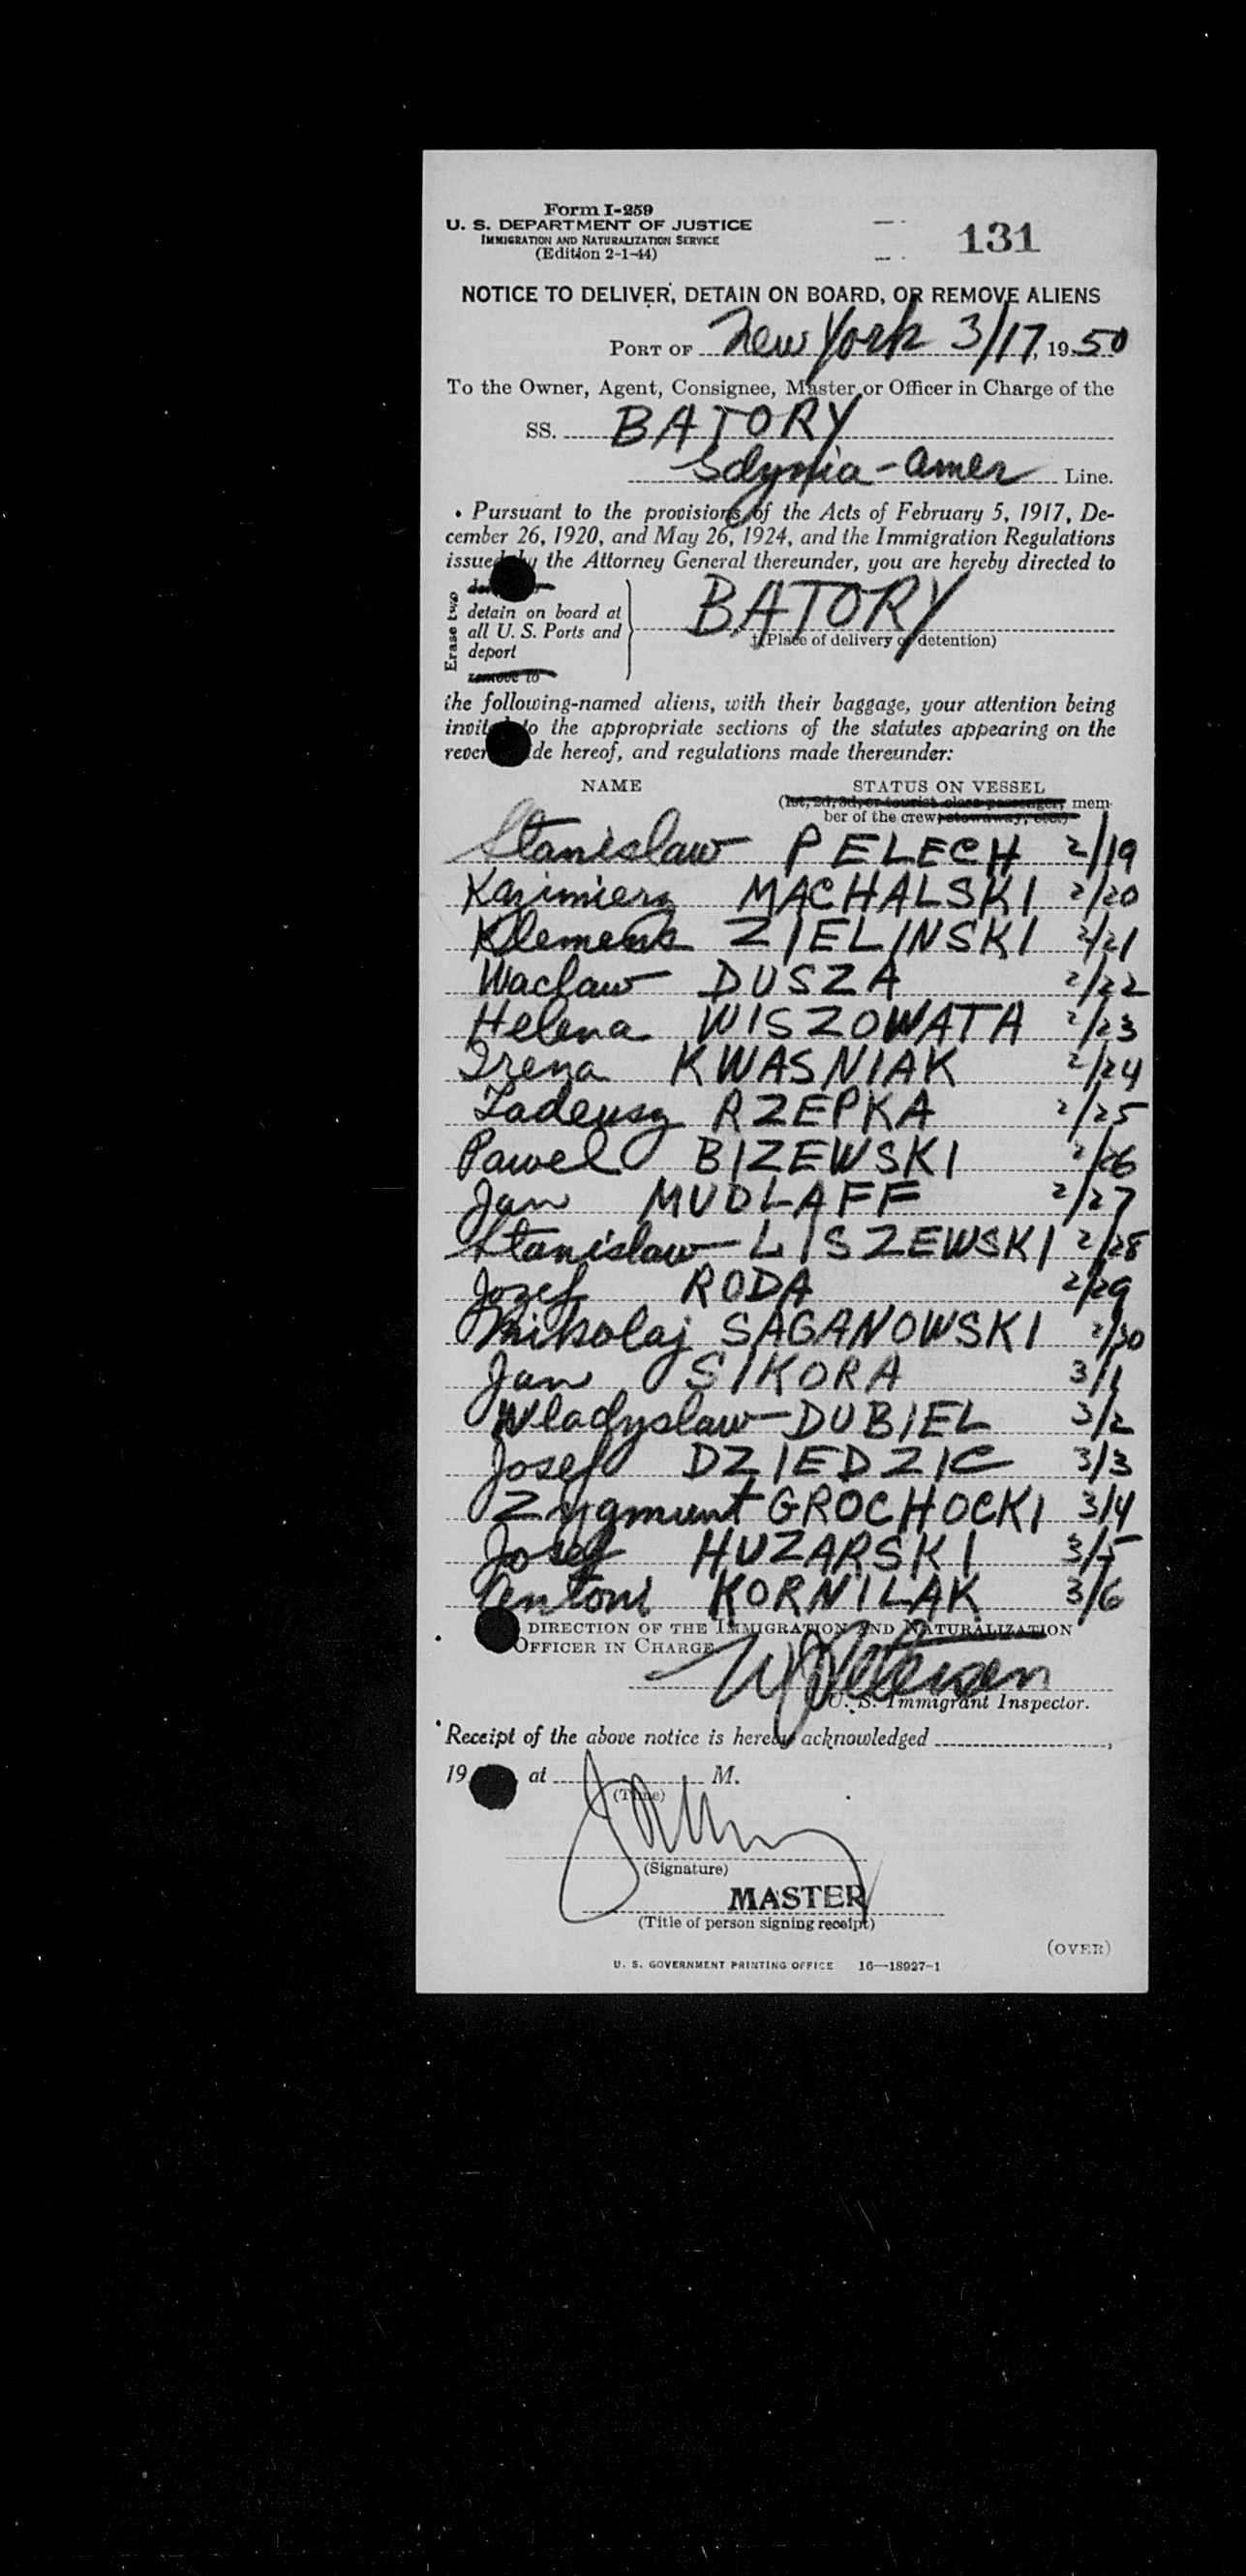 Form I-259
U. S. DEPARTMENT OF JUSTICE
IMMIGRATION AND NATURALIZATION SERVICE
(Edition 2-1-44)
131
NOTICE TO DELIVER, DETAIN ON BOARD, OR REMOVE ALIENS
PORT OF New York 3/17, 1950
To the Owner, Agent, Consignee, Master, or Officer in Charge of the
SS. BATORY
Gdynia-Amer Line.
Pursuant to the provisions of the Acts of February 5, 1917, De-
cember 26, 1920, and May 26, 1924, and the Immigration Regulations
issued by the Attorney General thereunder, you are hereby directed to
Erase two
detain on board at
all U. S. Ports and
deport
remove to
BATORY
(Place of delivery or detention)
the following-named aliens, with their baggage, your attention being
invited to the appropriate sections of the statutes appearing on the
reverse side hereof, and regulations made thereunder:
NAME STATUS ON VESSEL
(1st, 2d, 3d, or tourist class passenger, mem-
ber of the crew, stowaway, etc.)
Stanislaw PELECH 2/19
Kazimierz MACHALSKI 2/20
Klemens ZIELINSKI 2/21
Waclaw DUSZA 2/22
Helena WISZOWATA 2/23
Irena KWASNIAK 2/24
Tadeusz RZEPKA 2/25
Pawel BIZEWSKI 2/26
Jan MUDLAFF 2/27
Stanislaw LISZEWSKI 2/28
Jozef RODA 2/29
Mikolaj SAGANOWSKI 2/30
Jan SIKORA 3/1
Wladyslaw DUBIEL 3/2
Josef DZIEDZIC 3/3
Zygmunt GROCHOCKI 3/4
Josef HUZARSKI 3/5
Antoni KORNILAK 3/6
DIRECTION OF THE IMMIGRATION AND NATURALIZATION
OFFICER IN CHARGE
U. S. Immigrant Inspector.
Receipt of the above notice is hereby acknowledged
19 at M.
(Time)
(Signature)
MASTER
(Title of person signing receipt)
(OVER)
U. S. GOVERNMENT PRINTING OFFICE 16—18927-1